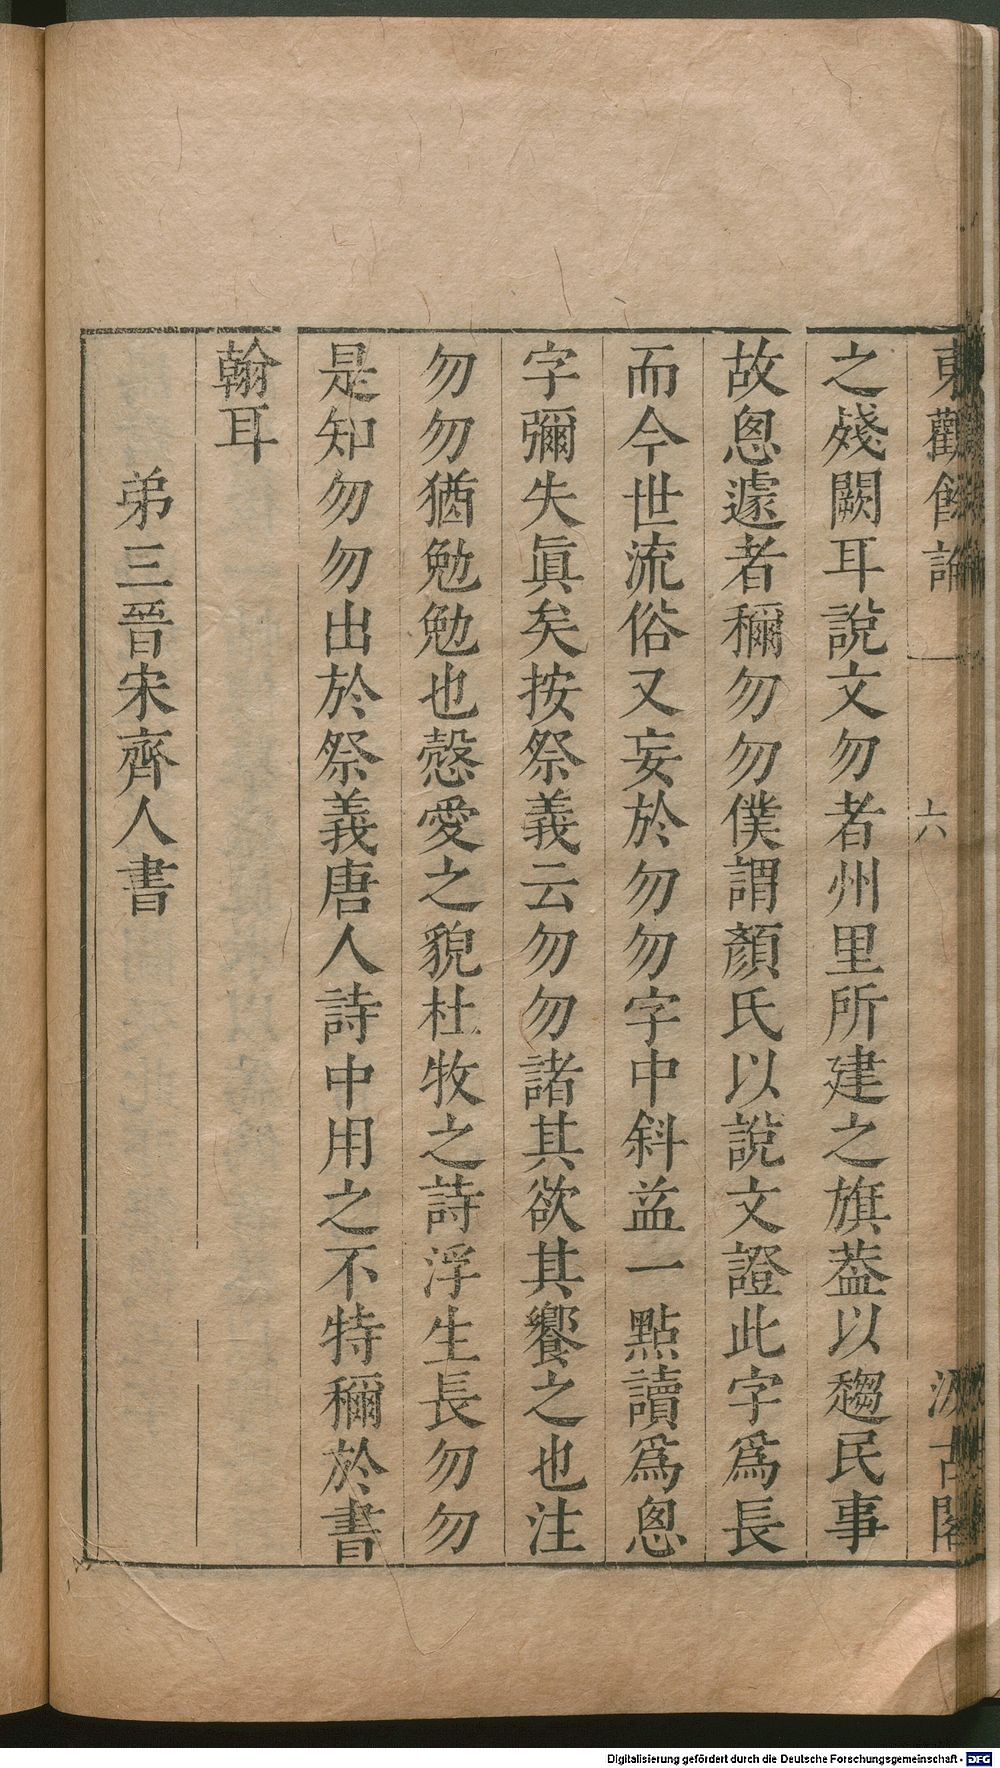 東觀餘論 一 六 汲古閣
之殘闕耳說文勿者州里所建之旗葢以趨民事
故悤遽者稱勿勿僕謂顏氏以說文證此字爲長
而今世流俗又妄於勿勿字中斜益一點讀爲悤
字彌失眞矣按祭義云勿勿諸其欲其饗之也注
勿勿猶勉勉也慤愛之貌杜牧之詩浮生長勿勿
是知勿勿出於祭義唐人詩中用之不特稱於書
翰耳
弟三晉宋齊人書
Digitalisierung gefördert durch die Deutsche Forschungsgemeinschaft - DFG